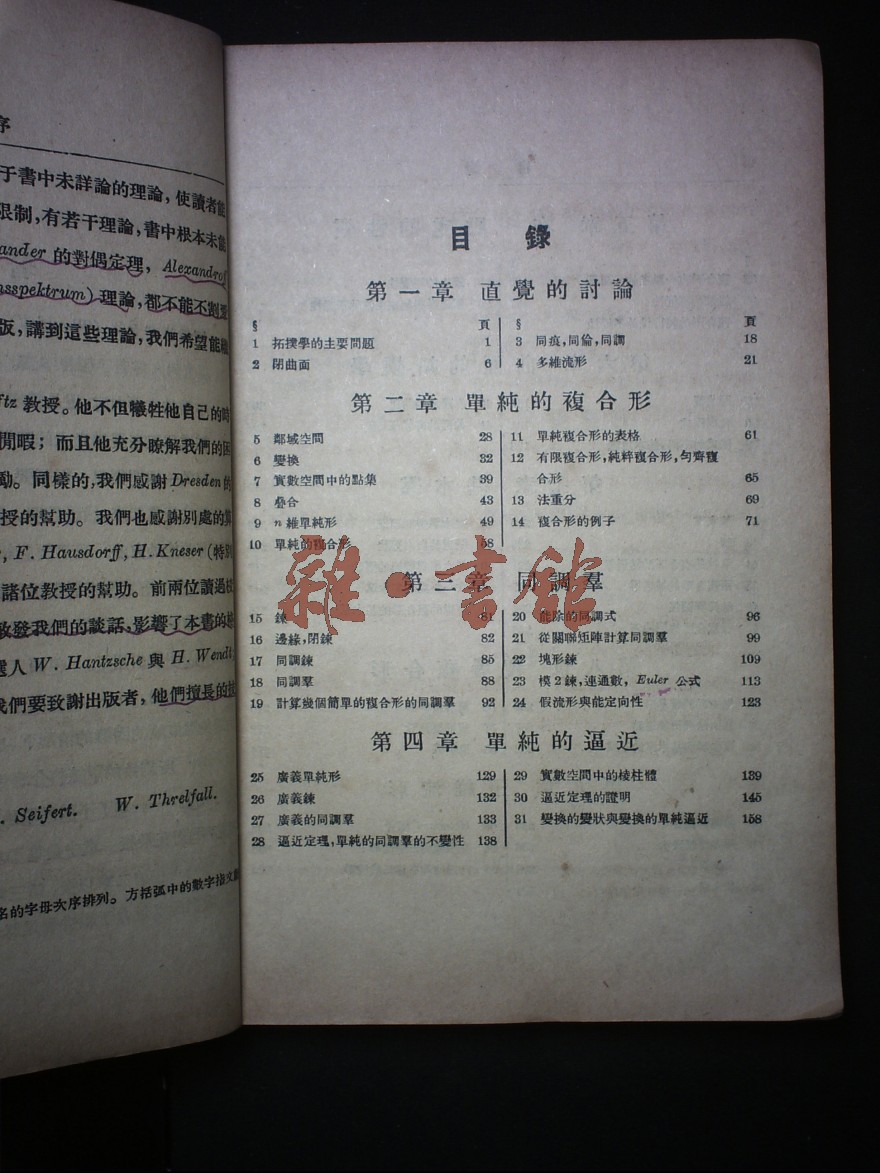 序
于書中未詳論的理論，使讀者能
限制，有若干理論，書中根本未能
ander 的對偶定理，Alexandroff
nsspektrum) 理論，都不能不割愛
版，講到這些理論，我們希望能
ftz 教授。他不但犧牲他自己的時
閒暇；而且他充分瞭解我們的困
勵。同樣的，我們感謝 Dresden 的
授的幫助。我們也感謝別處的
, F. Hausdorff, H. Kneser (特別
諸位教授的幫助。前兩位讀過
啟發我們的談話，影響了本書的
選人 W. Hantzsche 與 H. Wendt
我們要致謝出版者，他們擅長的
. Seifert. W. Threlfall.
名的字母次序排列。方括弧中的數字指文獻
目 錄
第一章 直覺的討論
§ 頁
1 拓撲學的主要問題 1
2 閉曲面 6
§ 頁
3 同痕，同倫，同調 18
4 多維流形 21
第二章 單純的複合形
5 鄰域空間 28
6 變換 32
7 實數空間中的點集 39
8 叠合 43
9 n 維單純形 49
10 單純的複合形 58
11 單純複合形的表格 61
12 有限複合形，純粹複合形，勻齊複
合形 65
13 法重分 69
14 複合形的例子 71
第三章 同調羣
15 鍊 81
16 邊緣，閉鍊 82
17 同調鍊 85
18 同調羣 88
19 計算幾個簡單的複合形的同調羣 92
20 能除的同調式 96
21 從關聯矩陣計算同調羣 99
22 塊形鍊 109
23 模 2 鍊，連通數，Euler 公式 113
24 假流形與能定向性 123
第四章 單純的逼近
25 廣義單純形 129
26 廣義鍊 132
27 廣義的同調羣 133
28 逼近定理，單純的同調羣的不變性 138
29 實數空間中的棱柱體 139
30 逼近定理的證明 145
31 變換的變狀與變換的單純逼近 158
雜·書館